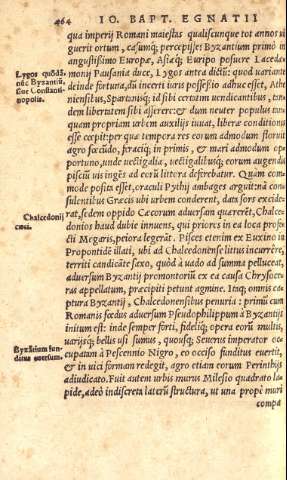 464 IO. BAPT. EGNATII
qua imperij Romani maiestas qualiscunque tot annos ui
guerit ortum, casumq; percepisset Byzantium primo in
angustissimo Europæ, Asiæq; Euripo posuere Lacedæ
monij Pausania duce, Lygos antea dictū: quod uariante
deinde fortuna, dū incerti iuris possessio adhuc esset, Athe
niensibus, Spartanisq; id sibi certatim uendicantibus, tan
dem libertatem sibi assereret: & dum neuter populus tan
quam propriam urbem auxilijs iuuat, libera conditionis
esse cœpit: per quæ tempora res eorum admodum floruit
agro fœcundo, feraciq; in primis, & mari admodum op
portuno, unde uectigalia, uectigalibusq; eorum augendis
pisciū uis ingēs ad eorū littora deferebatur. Quam com
mode posita esset, oraculi Pythij ambages arguit: nā con
sulentibus Græcis ubi urbem conderent, data sors excide
rat, sedem oppido Cæcorum aduersam quærerēt, Chalce
donios haud dubie innuens, qui priores in ea loca profe
cti Megaris, peiora legerāt. Pisces etenim ex Euxino in
Propontidē illati, ubi ad Chalcedonense littus incurrēre,
territi candicāte saxo, quod à uado ad summa pellucaat,
aduersum Byzantij promontoriū ex ea causa Chrysoce
ras appellatum, præcipiti petunt agmine. Itaq; omnis ca
ptura Byzantij, Chalcedonensibus penuria: primū cum
Romanis fœdus aduersum Pseudophilippum à Byzantijs
initum est: inde semper forti, fideliq; opera eorū multis,
uarijsq; bellis usi sumus, quousq; Seuerus imperator oc
cupatum à Pescennio Nigro, eo occiso funditus euertit,
& in uici formam redegit, agro etiam eorum Perinthijs
adiudicato. Fuit autem urbis murus Milesio quadrato la
pide, adeò indiscreta laterū structura, ut una propè muri
compa
Lygos quōdā,
nūc Byzantiū,
siue Constanti-
nopolis.
Chalcedonij
cæci.
Byzātium fun
ditus euersum.